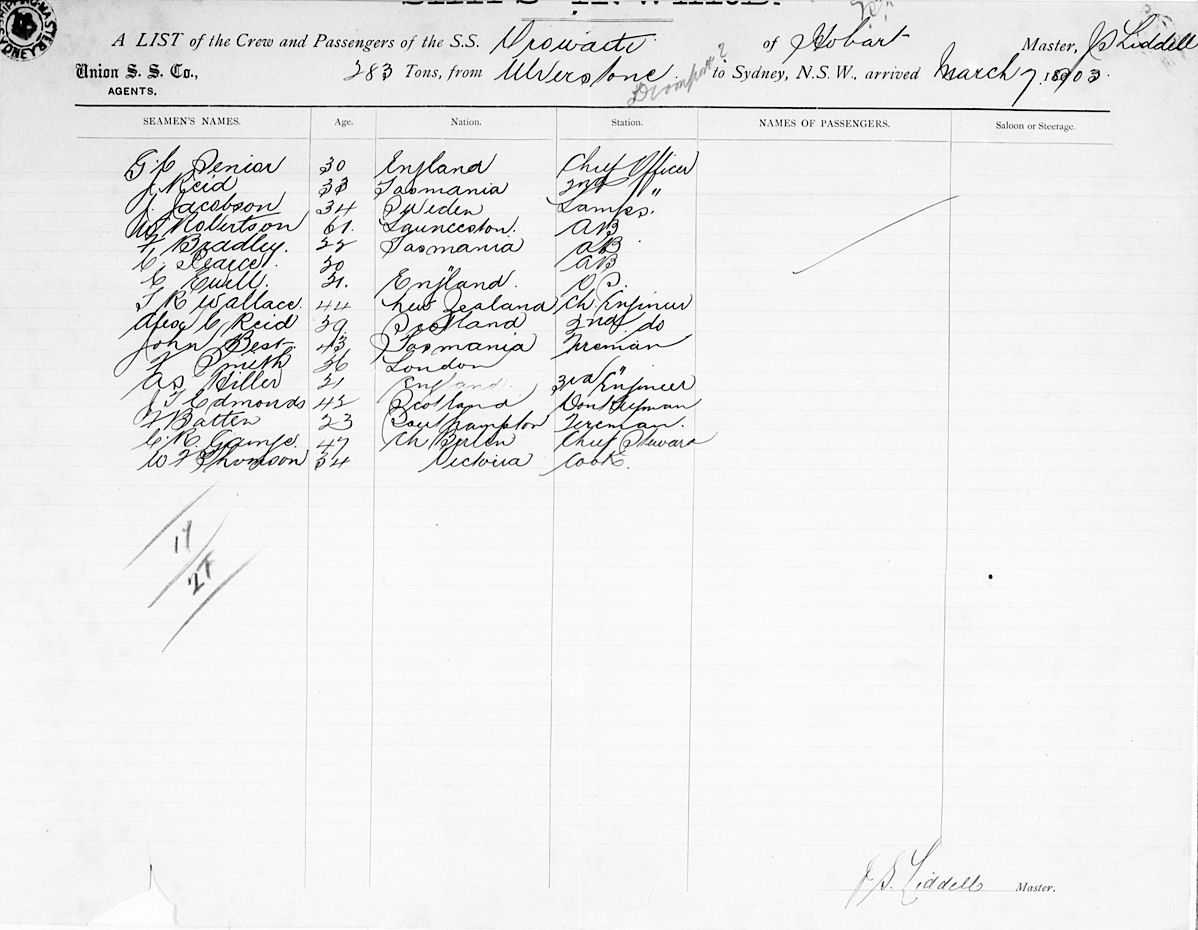 SHIPS INWARD.
A LIST of the Crew and Passengers of the S.S. Orowaiti of Hobart Master, JS Liddell
Union S. S. Co., 283 Tons, from Ulverstone to Sydney, N.S.W., arrived March 7. 1903
AGENTS.
SEAMEN'S NAMES. Age. Nation. Station. NAMES OF PASSENGERS. Saloon or Steerage.
G C Senior 30 England Chief Officer
J Reid 33 Tasmania 2nd "
J. Jacobson 34 Sweden Lamps.
Robertson 61. Launceston. AB
F Bradley. 22 Tasmania AB
C. Pearce. 20 " AB
E Ewell. 21. England. OS.
T R Wallace. 44 New Zealand Ch. Engineer
Alex C Reid 39 Scotland 2nd do
John Best 43 Tasmania Fireman
F Smith 36 London "
A S Hiller 31 England. 3rd Engineer
J T Edmonds 42 Scotland Donkeyman
F Batten 23 Southampton Fireman.
C R. 47 Ch Chief Steward
W F Thomson 34 Victoria Cook.
J S. Liddell Master.